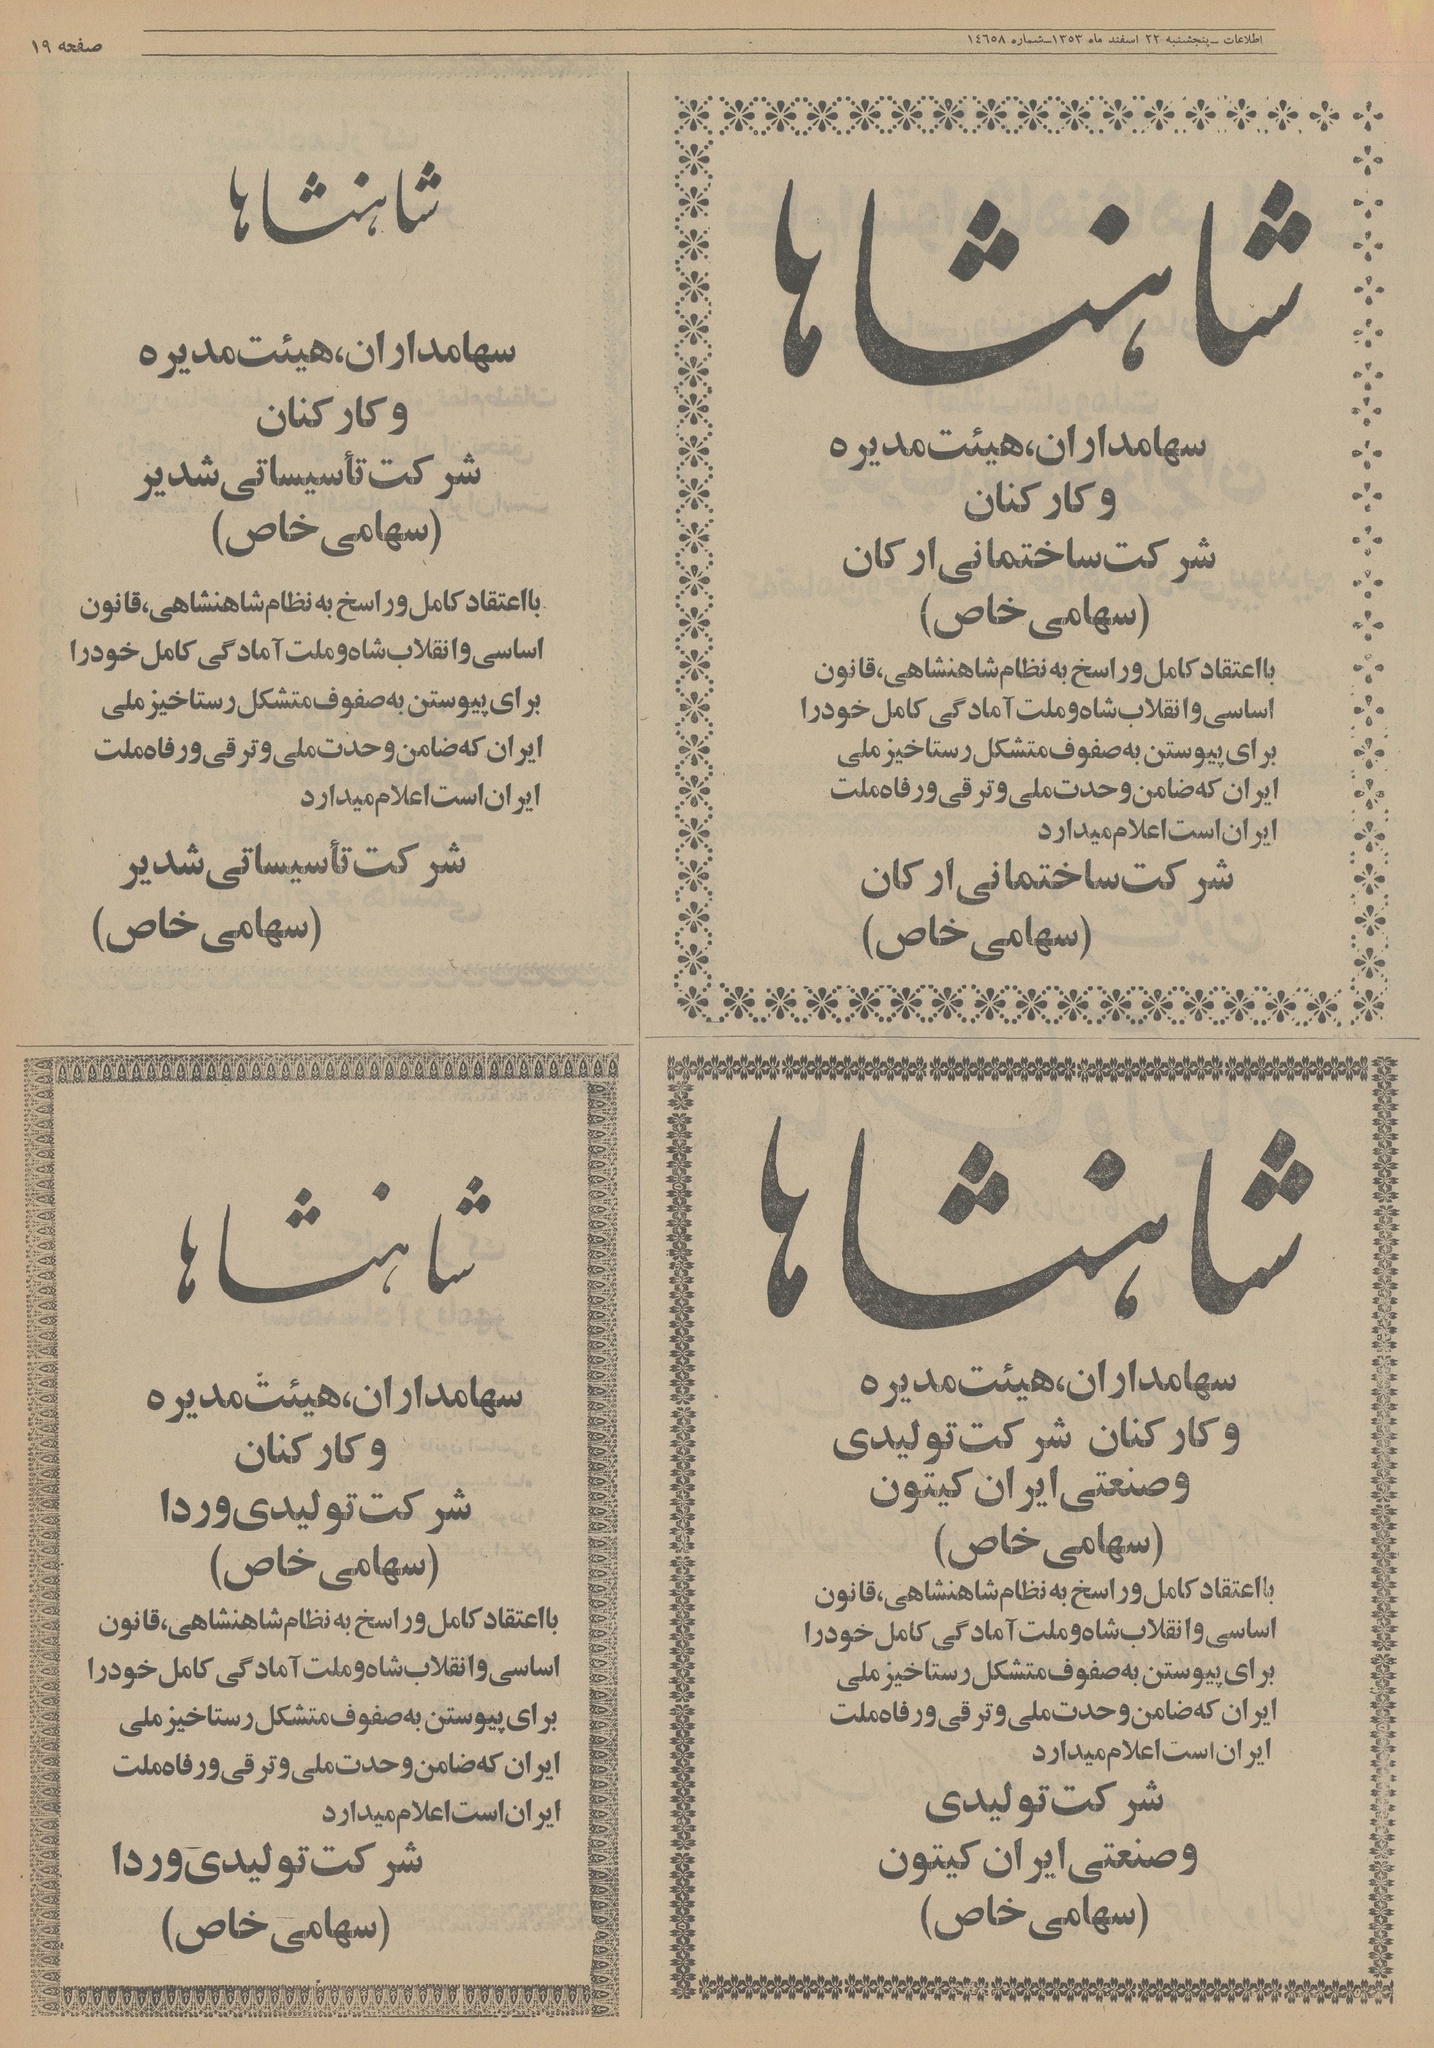 اطلاعات ـ پنجشنبه ۲۲ اسفند ماه ۱۳۵۳ـ شماره ۱٤٦٥۸
صفحه ۱۹
شاهنشاها
سهامداران، هیئت مدیره
و کارکنان
شرکت ساختمانی ارکان
(سهامی خاص)
با اعتقاد کامل و راسخ به نظام شاهنشاهی، قانون
اساسی و انقلاب شاه و ملت آمادگی کامل خود را
برای پیوستن به صفوف متشکل رستاخیز ملی
ایران که ضامن وحدت ملی و ترقی و رفاه ملت
ایران است اعلام میدارد
شرکت ساختمانی ارکان
(سهامی خاص)
شاهنشاها
سهامداران، هیئت مدیره
و کارکنان
شرکت تأسیساتی شدیر
(سهامی خاص)
با اعتقاد کامل و راسخ به نظام شاهنشاهی، قانون
اساسی و انقلاب شاه و ملت آمادگی کامل خود را
برای پیوستن به صفوف متشکل رستاخیز ملی
ایران که ضامن وحدت ملی و ترقی و رفاه ملت
ایران است اعلام میدارد
شرکت تأسیساتی شدیر
(سهامی خاص)
شاهنشاها
سهامداران، هیئت مدیره
و کارکنان شرکت تولیدی
و صنعتی ایران کیتون
(سهامی خاص)
با اعتقاد کامل و راسخ به نظام شاهنشاهی، قانون
اساسی و انقلاب شاه و ملت آمادگی کامل خود را
برای پیوستن به صفوف متشکل رستاخیز ملی
ایران که ضامن وحدت ملی و ترقی و رفاه ملت
ایران است اعلام میدارد
شرکت تولیدی
و صنعتی ایران کیتون
(سهامی خاص)
شاهنشاها
سهامداران، هیئت مدیره
و کارکنان
شرکت تولیدی وردا
(سهامی خاص)
با اعتقاد کامل و راسخ به نظام شاهنشاهی، قانون
اساسی و انقلاب شاه و ملت آمادگی کامل خود را
برای پیوستن به صفوف متشکل رستاخیز ملی
ایران که ضامن وحدت ملی و ترقی و رفاه ملت
ایران است اعلام میدارد
شرکت تولیدی وردا
(سهامی خاص)